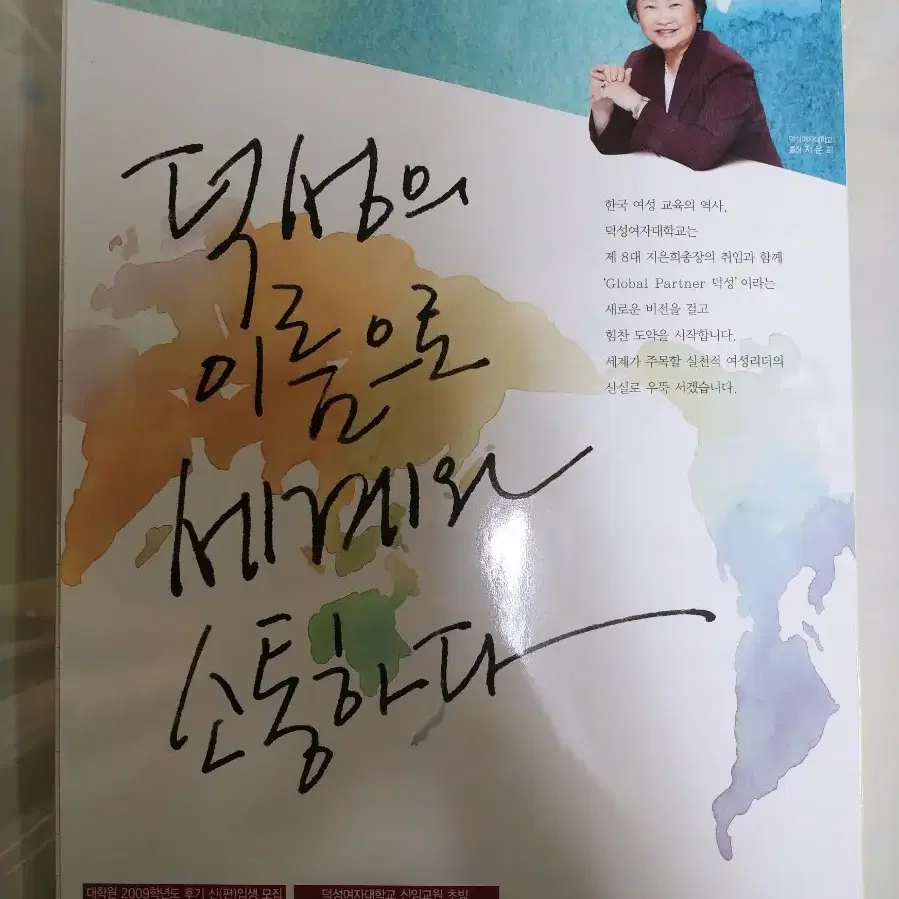 덕성여자대학교
총장 지은희
덕성의
이름으로
세계와
소통하다
한국 여성 교육의 역사,
덕성여자대학교는
제 8대 지은희총장의 취임과 함께
'Global Partner 덕성'이라는
새로운 비전을 걸고
힘찬 도약을 시작합니다.
세계가 주목할 실천적 여성리더의
산실로 우뚝 서겠습니다.
대학원 2009학년도 후기 신(편)입생 모집
덕성여자대학교 신임교원 초빙